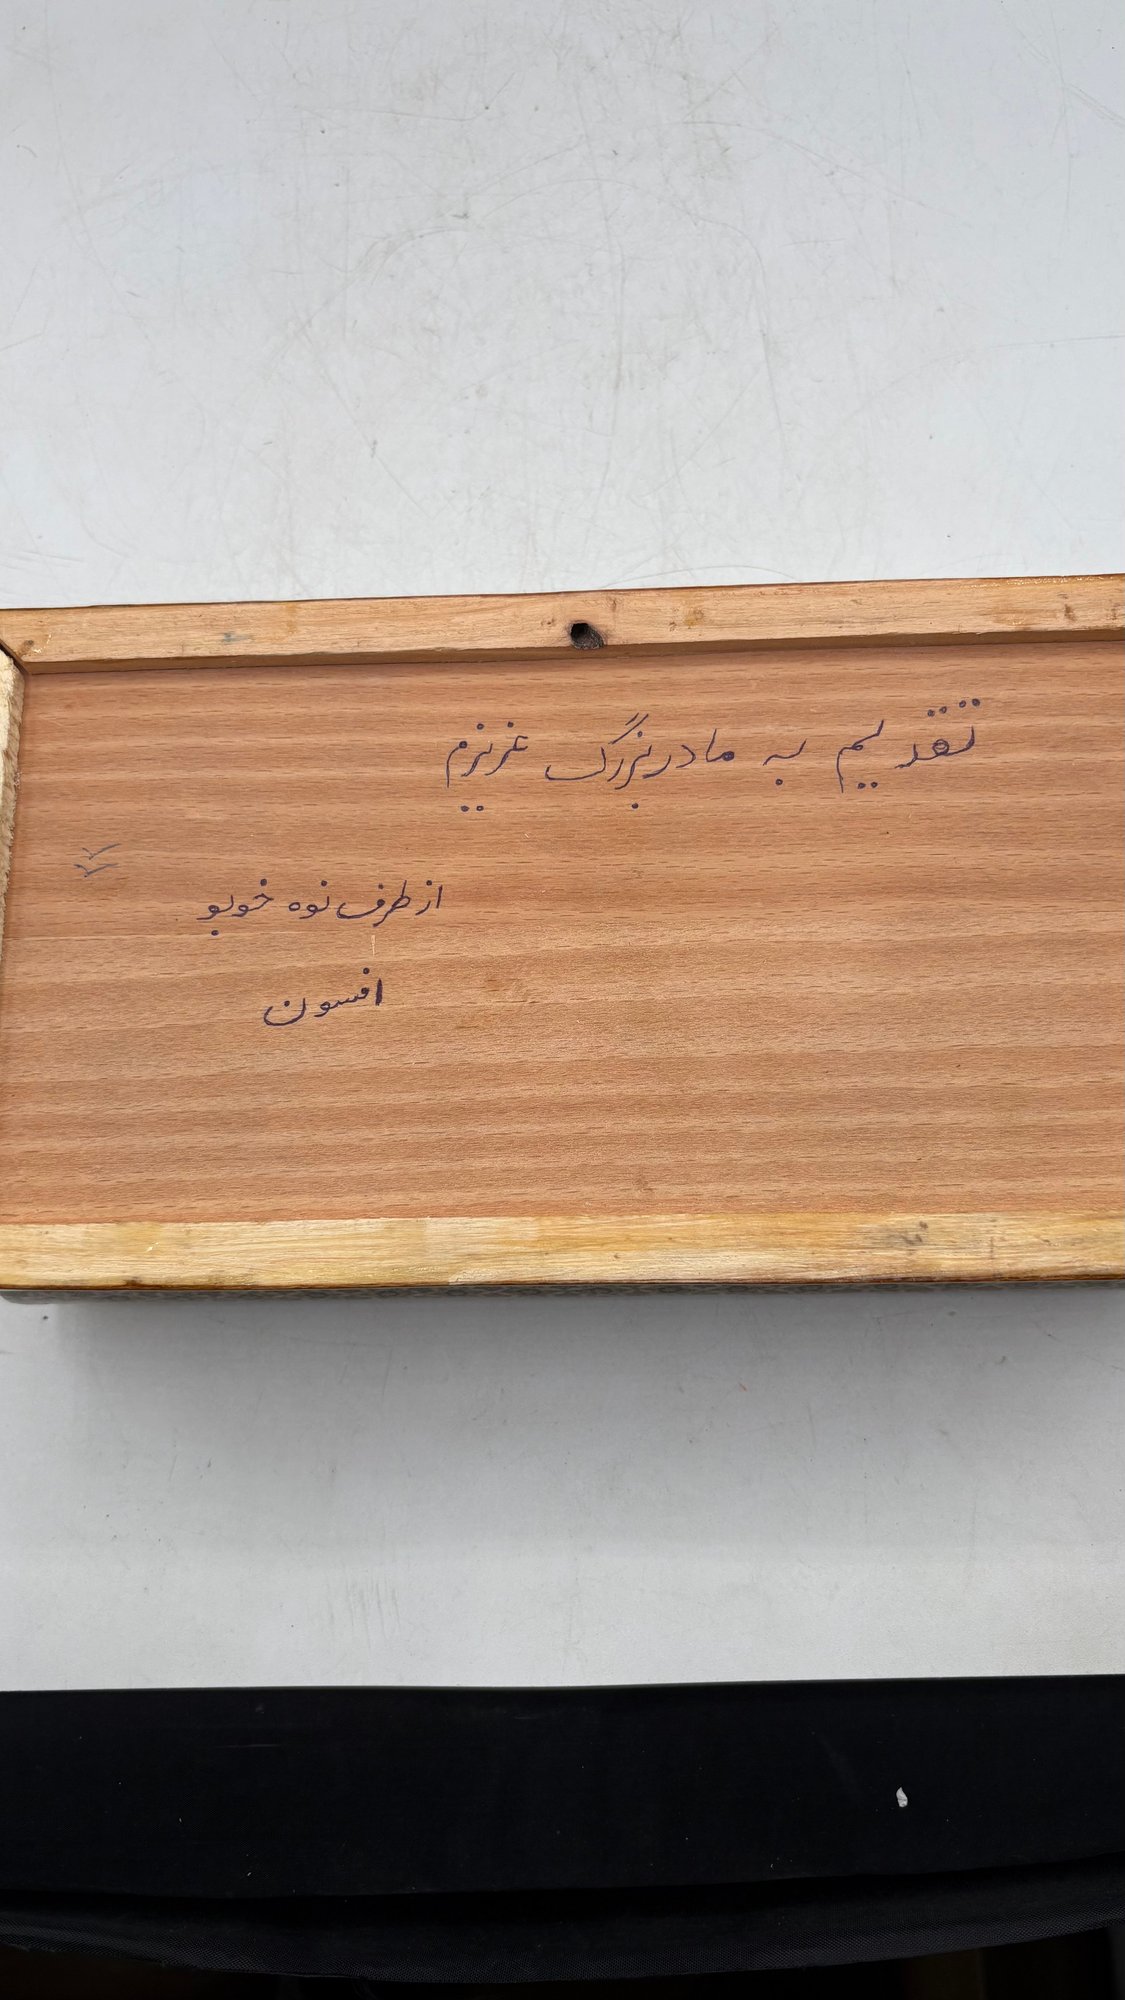 تقدیم به مادربزرگ عزیزم
از طرف نوه خوبو
افسون